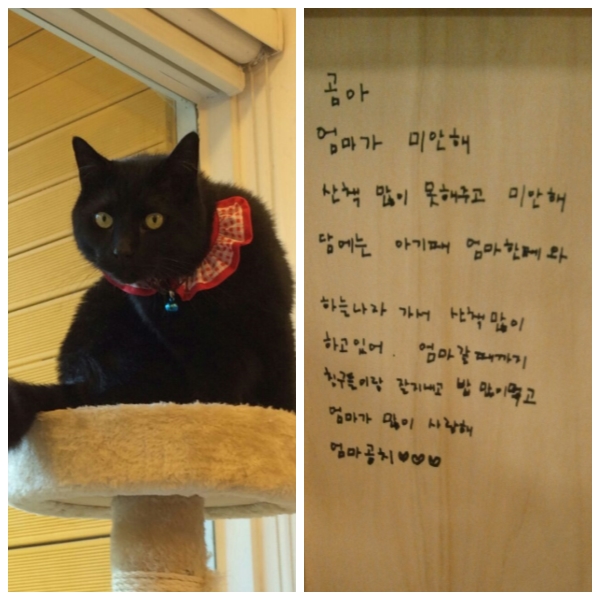 곰아
엄마가 미안해
산책 많이 못해주고 미안해
담에는 아기때 엄마한테 와
하늘나라 가서 산책 많이
하고있어. 엄마갈때까지
친구들이랑 잘지내고 밥 많이먹고
엄마가 많이 사랑해
엄마공치♥♥♥